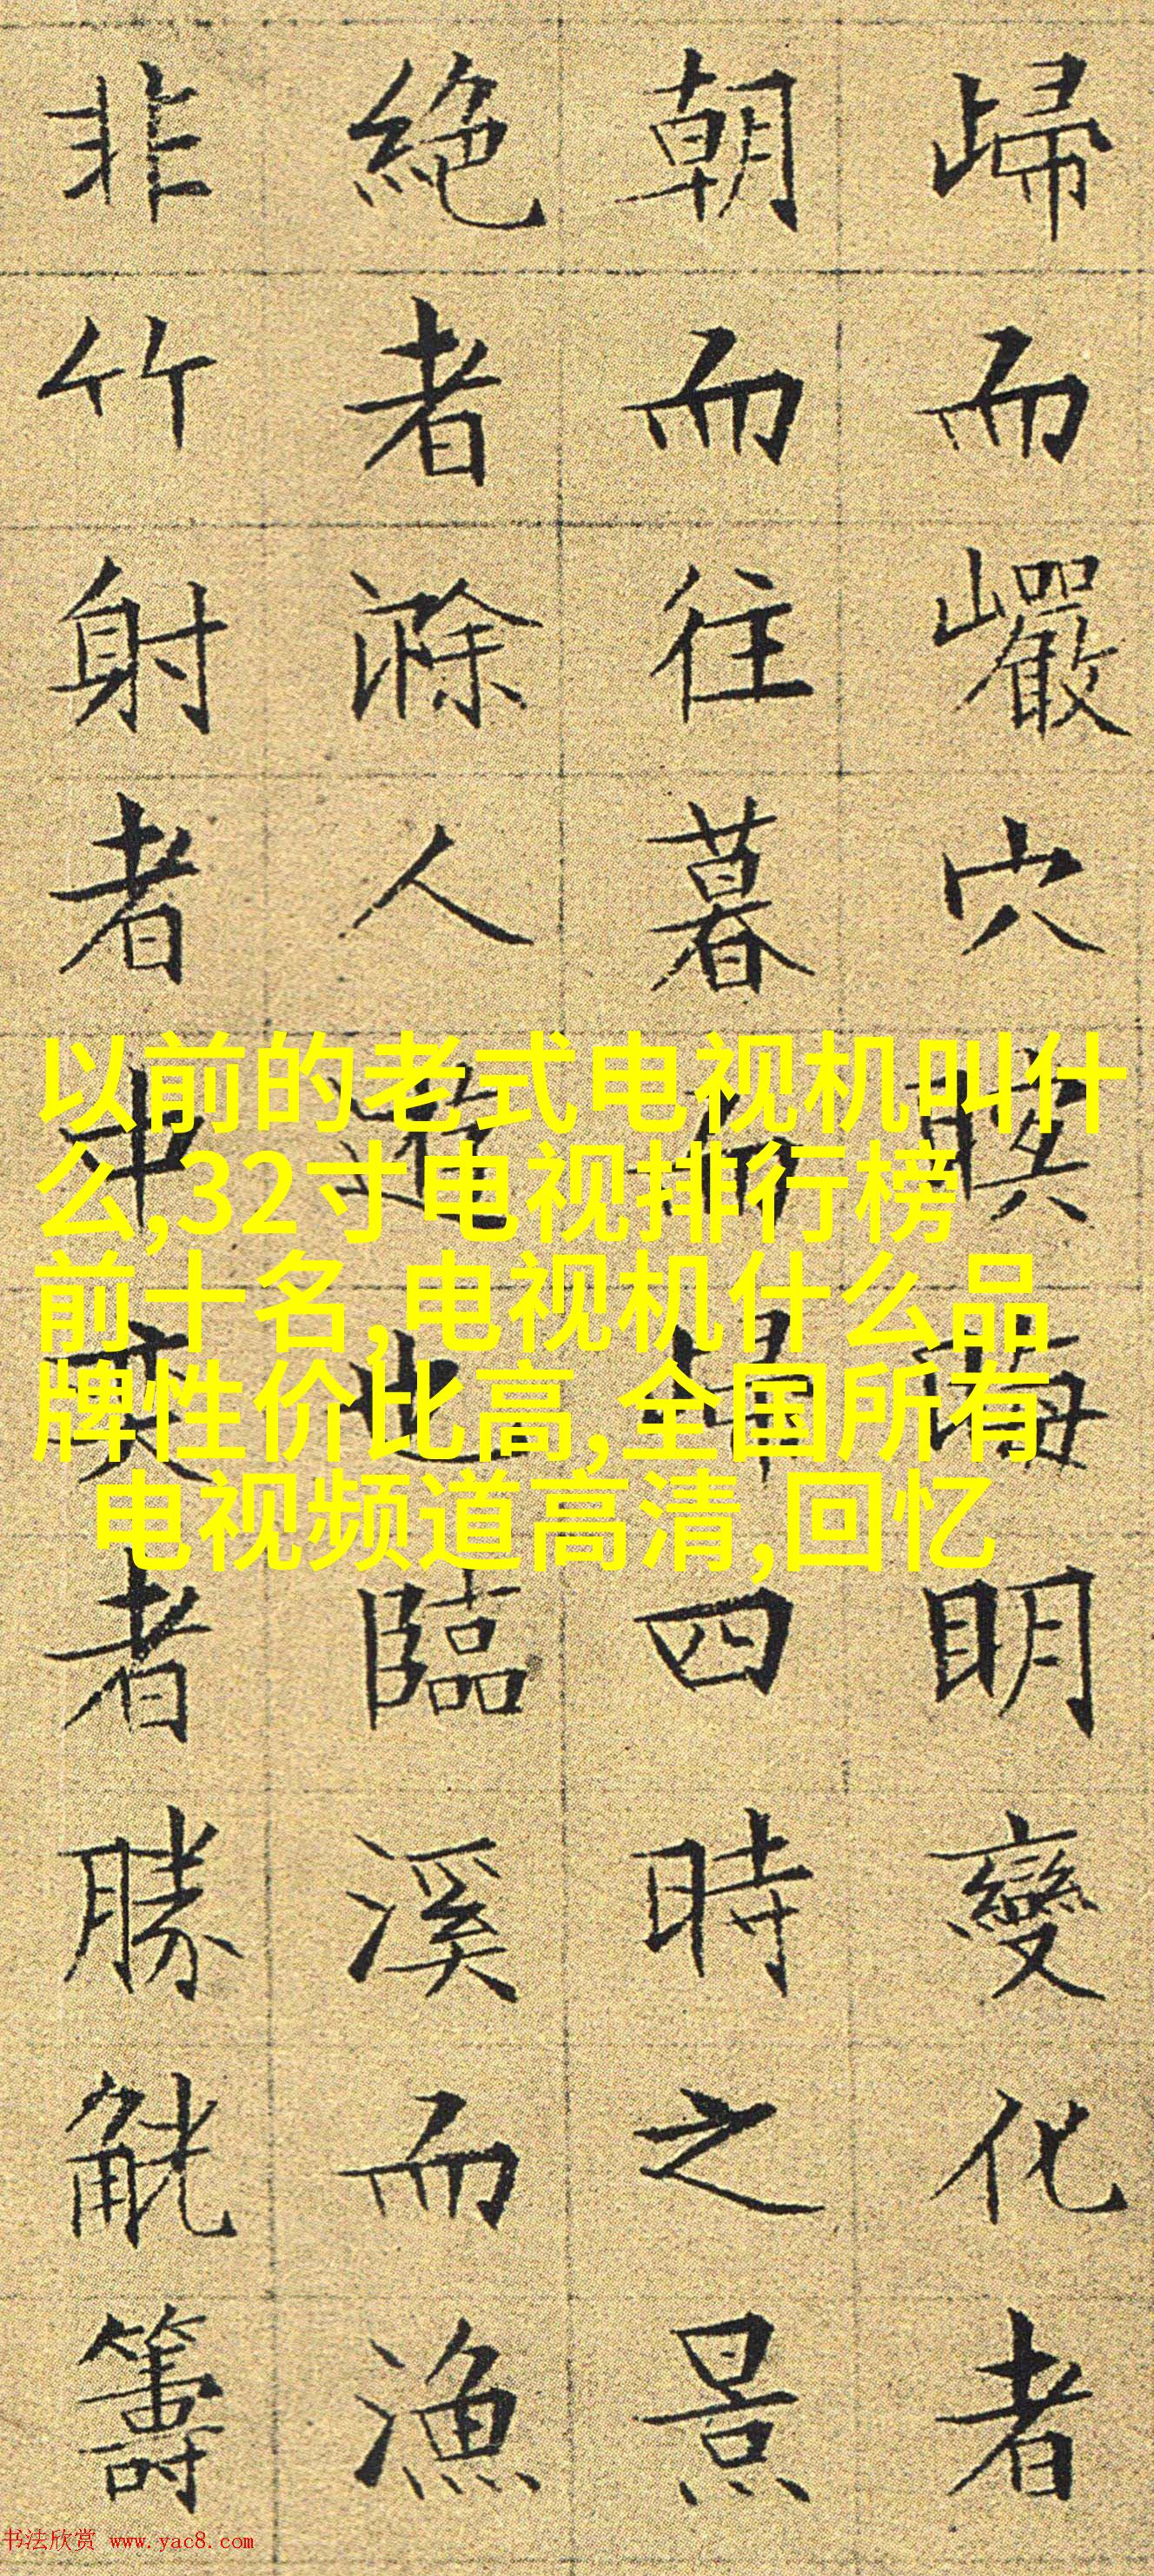 歸而巖穴暝晦明變化者
朝而往暮而歸四時之景
絶者滁人遊也臨溪而漁
非竹射者中奕者勝觥籌
以前的老式电视机叫什
么,32寸电视排行榜
前十名,电视机什么品
牌性价比高,全国所有
电视频道高清,回忆
书法欣赏 www.yac8.com